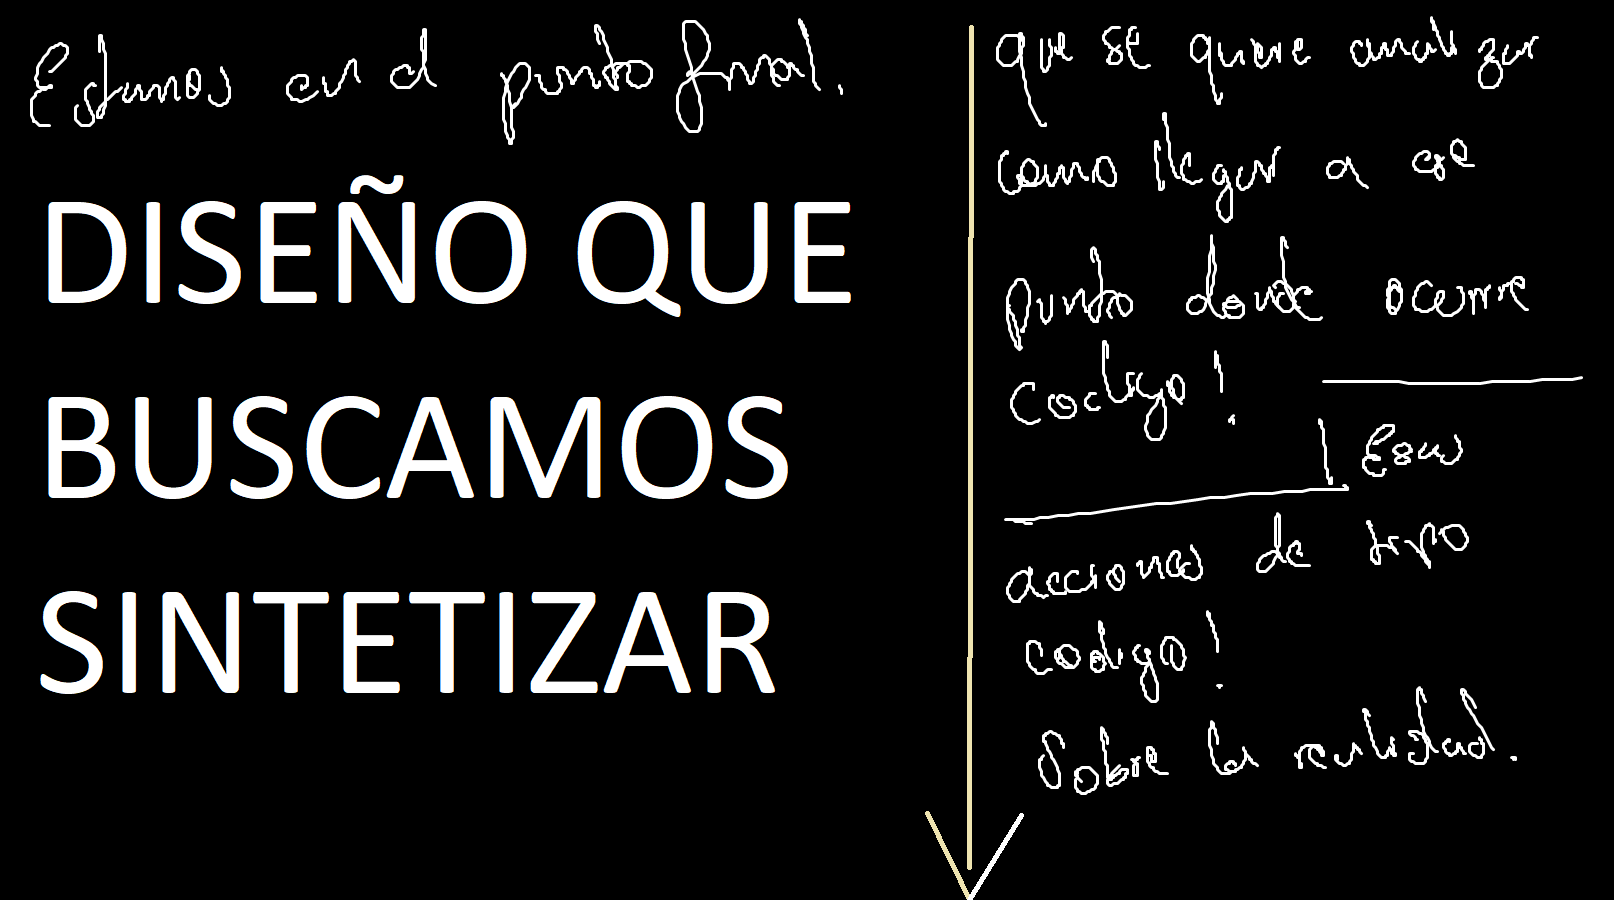 Estamos en el punto final.
DISEÑO QUE
BUSCAMOS
SINTETIZAR
que se quiere analizar
como llegar a ese
punto donde ocurre
codigo!
! Esas
acciones de tipo
codigo!
Sobre la realidad.